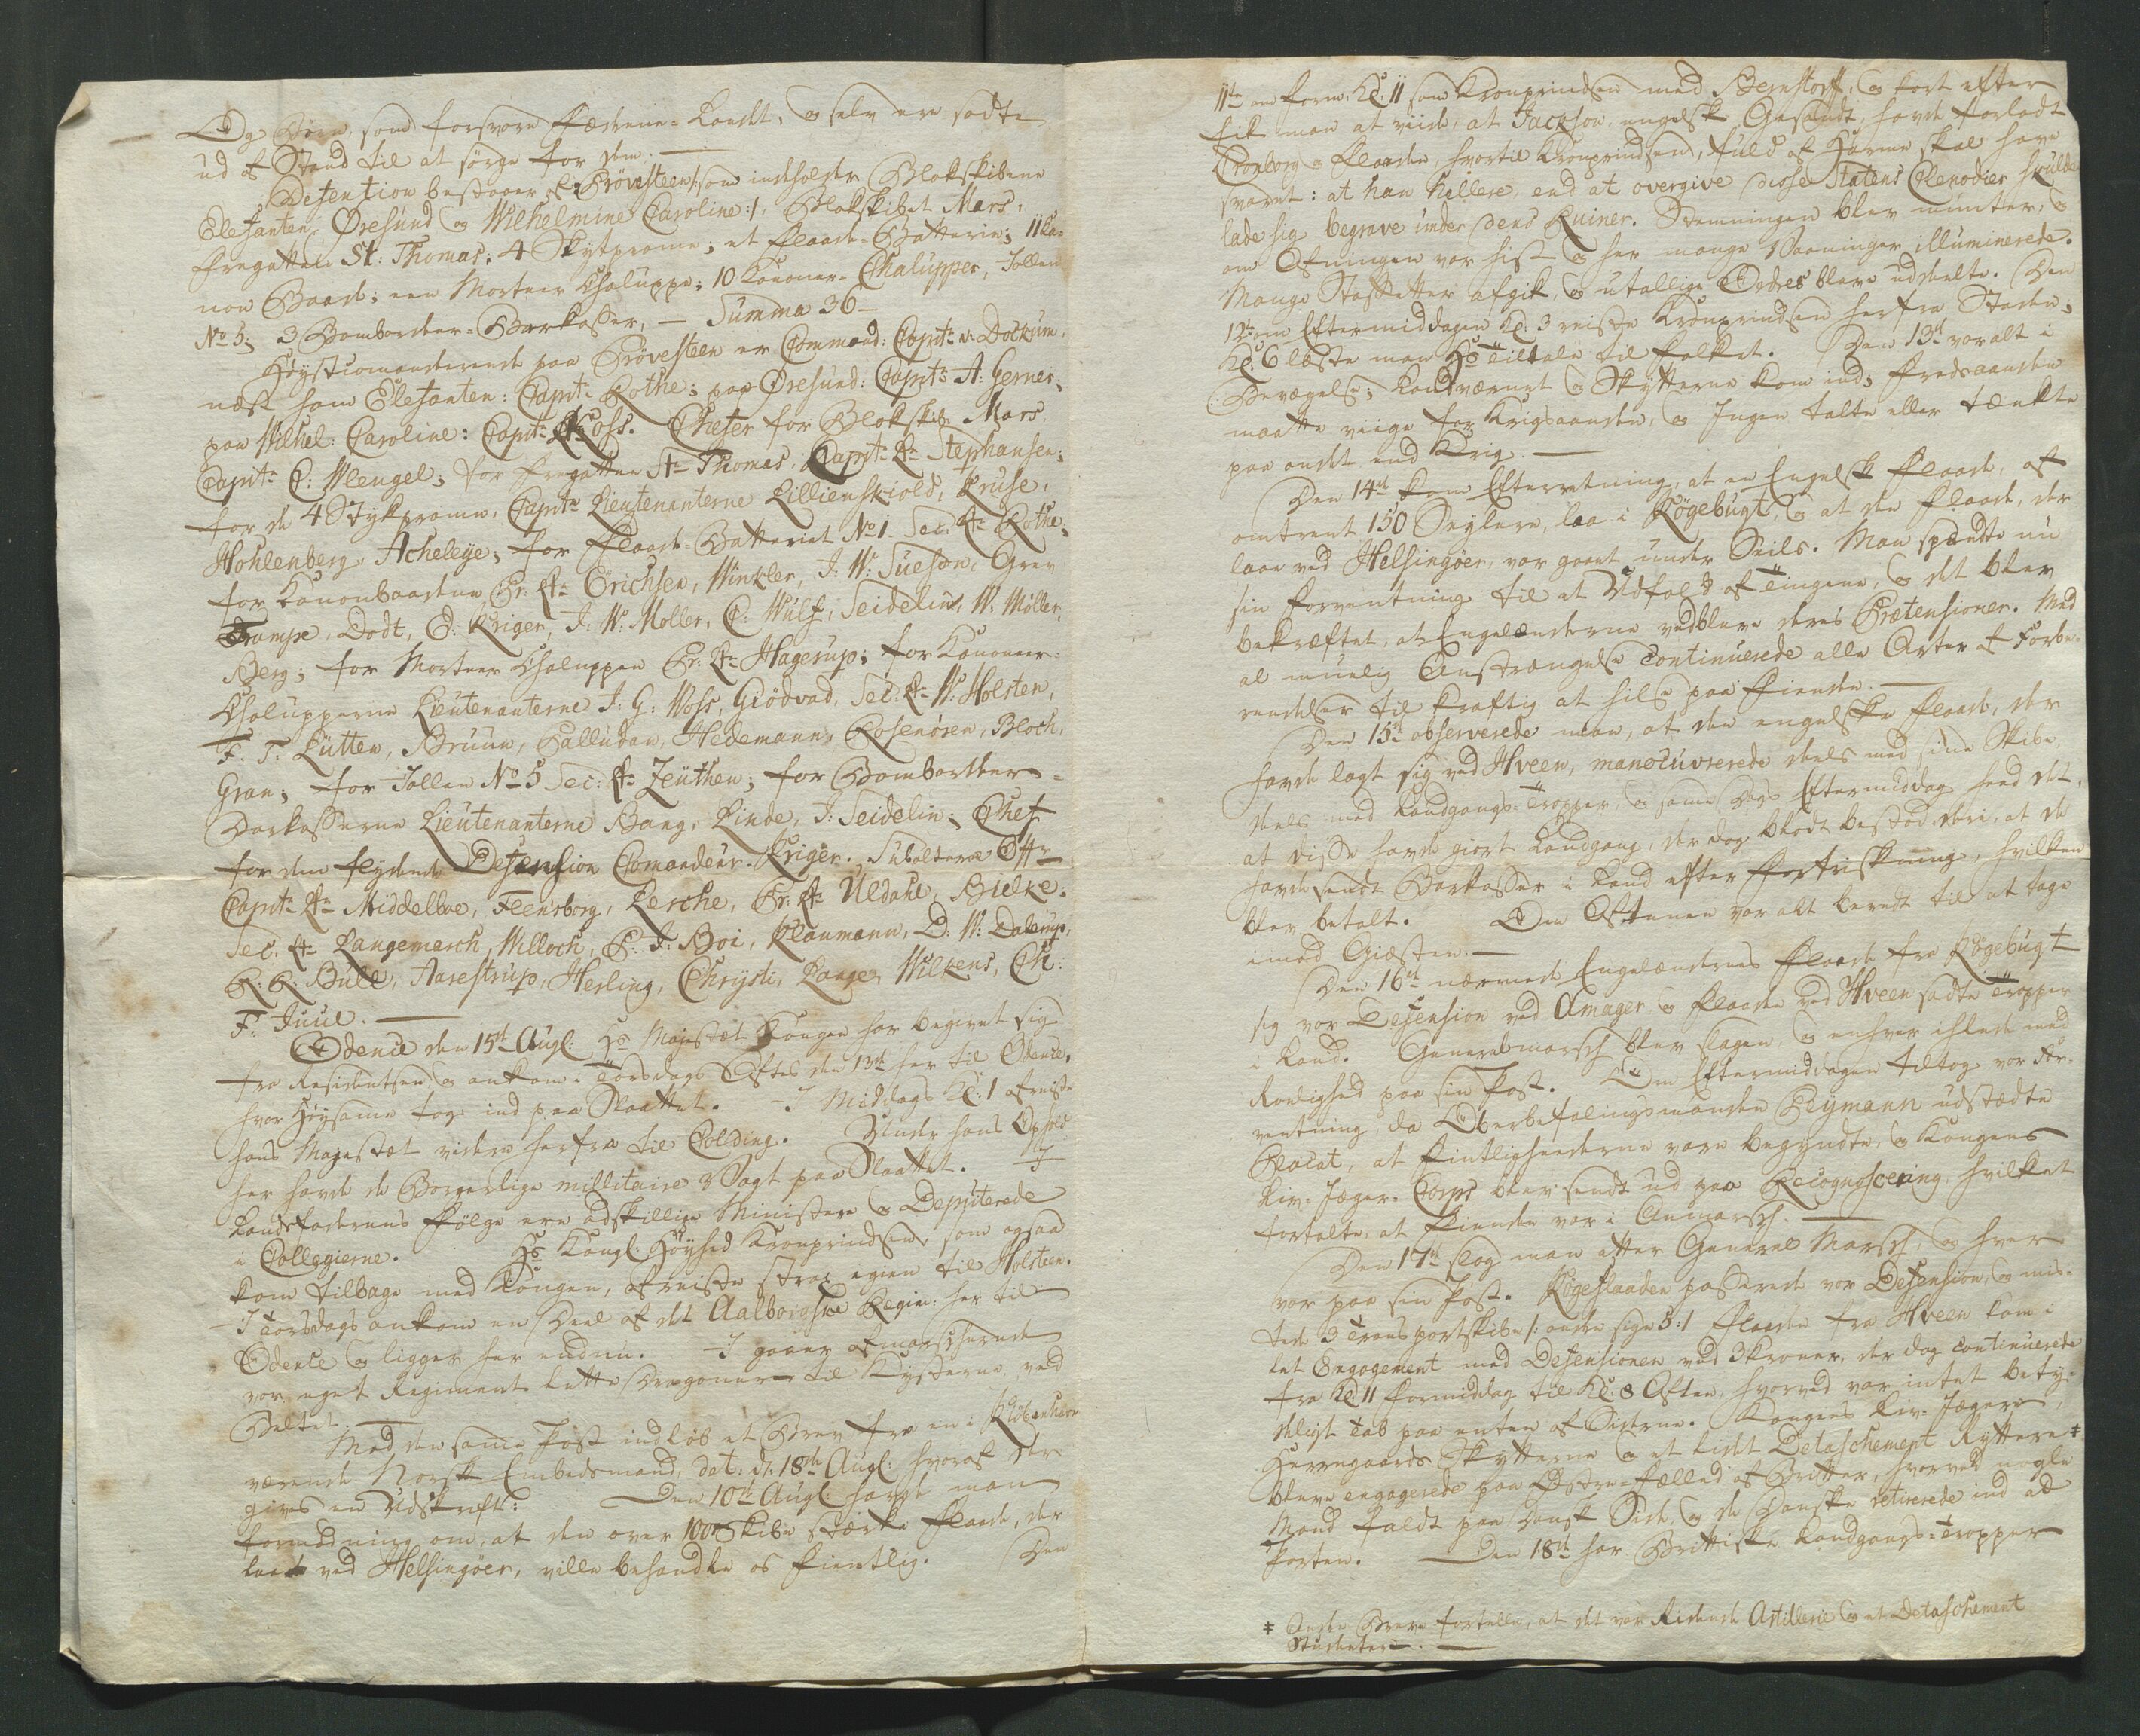 Og Børn, som forsvare Fædrene-Landet, og selv ere sadte
ud af Stand til at sørge for dem. —
Defention bestaaer af: Prövesteen /: som indeholder Blokskibene
Elefanten, Øresund og Wilhelmine Caroline :/, Blokskibet Mars,
Fregatten St: Thomas, 4 Stykprame; et Flaade-Batterie; 11 Ka-
non Baade; een Morteer Chaluppe; 10 Kanoner-Chalupper, Jollen
No 5; 3 Bombardeer-Barkasser, — Summa 36 —
Høystcomanderende paa Prövesteen er Command: Capit: v: Dockum,
næst ham Elefanten: Capit: Rothe; paa Øresund: Capit: A: Gerner,
paa Wilhel: Caroline: Capit: Koss. Chefer for Blokskib: Mars
Capit: C: Wleugel; for Fregatten St: Thomas, Capit: Lt: Stephansen;
for de 4 Stykprame, Capt: Lieutenanterne Lillienskiold, Kruse,
Hohlenberg, Acheleye; for Flaade-Batteriet No 1 Sec: Lt: Rothe;
for Kanonbaadene Pr: Lt: Erichsen, Winkler, J: W: Sueson, Grev
Trampe, Dodt, O: Kriger, J: W: Moller, C: Wulf, Seidelin, W: Møller,
Berg; for Morteer Chaluppen Pr: Lt: Hagerup; for Kanoneer-
Chalupperne Lieutenanterne J: G: Woss, Giödvad, Sec: Lt: W: Holsten,
F. T. Lütten, Bruun, Palludan, Hedemann, Rosenören, Bloch,
Gran; for Jollen No 5 Sec: Lt: Zeuthen; for Bombardeer-
Barkasserne Lieutenanterne Bang, Linde, J: Seidelin; Chef
for den flydende Defension Comandeur-Kriger. Subalterne Off:
Capit: Lt: Middelboe, Flensborg, Lerche, Pr: Lt: Uldahl, Bielke.
Sec: Lt: Langemarch, Willoch, P: J: Boi, Klaumann, D: W: Dalerup,
R: R: Bull, Aarestrup, Herling, Chrysti, Lange, Wilkens, Ch:
F. Juul. —
Odence den 15de Augl: Hs Majestæt Kongen har begivet sig
fra Residentsen, og ankom i Torsdags Aftes den 13de her til Odence,
hvor Høysamme tog ind paa Slottet. — I Middags Kl: 1 afreiste
hans Majestæt videre herfra til Colding. Under hans Ophold
her havde de Borgerlige millitaire Vagt paa Slottet. I
Landsfaderens Følge ere adskillige Ministere og Deputerede
i Collegierne. Hs Kongl: Høyhed Kronprindsen, som ogsaa
kom tilbage med Kongen, afreiste strax igien til Holsten.
— I Torsdags ankom en Deel af det Aalborgske Regim: her til
Odence og ligger her endnu. — I gaaer afmarscherede
vor eget Regiment lette Dragoner til Kysterne ved
Beltet. —
Med den samme Post indløb et Brev fra en i Kiöbenhavn
værende Norsk Embedsmand, dat: d: 18de Augl: hvoraf der
gives en Udskrift: Den 10de Augl: havde man
formodning om, at den over 100de Skibe stærke Flaade, der
laae ved Helsingöer, ville behandle os fientlig. Den
11te om Form: Kl: 11 saae Kronprindsen med Bernstorff, og kort efter
fik man at viide, at Jackson, engelsk Gesandt, havde forlodt
Cronborg og Flaaden, hvortil Kronprindsen, fuld af Harme skal have
svaret: at han hellere, end at overgive disse Statens Clenodier skulde
lade sig begrave under dens Ruiner. Stemningen blev munter, og
om Aftningen var hist og her mange Vaaninger illuminerede.
Mange Stafetter afgik, og utallige Ordres bleve uddeelte. Den
12te om Eftermiddagen Kl: 3 reiste Kronprindsen herfra Staden,
Kl: 6 læste man Hs Tiltale til Folket. Den 13de var alt i
Bevægelse; Landværnet og Skytterne kom ind; Fredsaanden
maatte viige for Krigsaanden, og Ingen talte eller tænkte
paa andet end Krig. —
Den 14de kom Efterretning, at en Engelsk Flaade, af
omtrent 150 Seylere, laae i Kögebugt, og at den Flaade, der
laae ved Helsingøer, var gaaet under Seils. Man spændte nu
sin Forventning til et Udfald af Tingene, og det blev
bekræftet, at Engelænderne vedbleve deres Prætensioner. Med
al muelig Anstrængelse continuerede alle Arter af Forbe-
redelser til kraftig at hilse paa Fienden. —
Den 15de observerede man, at den engelske Flaade, der
havde lagt sig ved Hveen, manoeuvrerede deels med sine Skibe,
deels med Landgangs-Tropper, og samme Dags Eftermiddag heed det,
at disse havde giort Landgang, der dog blodt bestod deri, at de
havde sendt Barkasser i Land efter Forfriskning, hvilken
blev betalt. Om Aftenen var alt beredt til at tage
imod Giæsten. —
Den 16de nærmede Engelændernes Flaade fra Kögebugt
sig vor Defension ved Amager og Flaaden ved Hveen sadte Tropper
i Land. Generalmarsch blev slagen, og enhver iilede med
Roelighed paa sin Post. Om Eftermiddagen tiltog vor For-
ventning, da Overbefalingsmanden Peymann udstædte
Placat, at Fintlighederne vare begyndte, og Kongens
Liv-Jæger-Corps blev sendt ud paa Recognoscering, hvilket
fortalte, at Fienden var i Anmarsch. —
Den 17de slog man atter General Marsch, og hver
var paa sin Post. Kögeflaaden passerede vor Defension, og mis-
tede 3 Transportskibe /: andre sige 5 :/ Flaaden fra Hveen kom i
let Engagement med Defensionen ved 3kroner, der dog continuerede
fra Kl: 11 Formiddag til Kl: 8 Aften, hvorved var intet bety-
deligt Tab paa enten af Siderne. Kongens Liv-Jægere,
Herregaards Skytterne og et lidet Detaschement Ryttere ‡
bleve engagerede paa Østre-Fælled af Britter, hvorved nogle
Mand faldt paa Dansk Side, og de Danske retirerede ind ad
Porten. Den 18de har Brittiske Landgangs-Tropper
‡ Andre Breve fortelle, at det var Ridende Artillerie og et Detaschement
Studenter. —